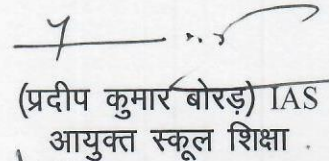 (प्रदीप कुमार बोरड़) IAS
आयुक्त स्कूल शिक्षा